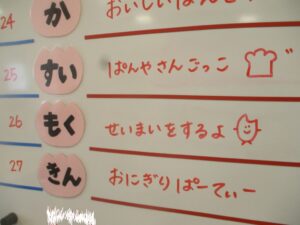 24 か おいしいぱんを
25 すい ぱんやさんごっこ
26 もく せいまいをするよ
27 きん おにぎりぱーてぃー